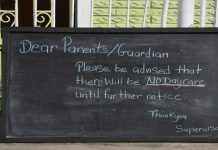 Dear Parents/Guardian
Please be advised that
there will be NO DAYCARE
until further notice
Thank you
Supervisor